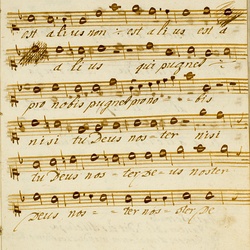 est alius non est alius est a
alius qui pugnet
pro nobis pugnet pro no - bis
nisi tu Deus nos - ter nisi
tu Deus nos - ter De - us noster
Deus nos - - ter nos - ter De